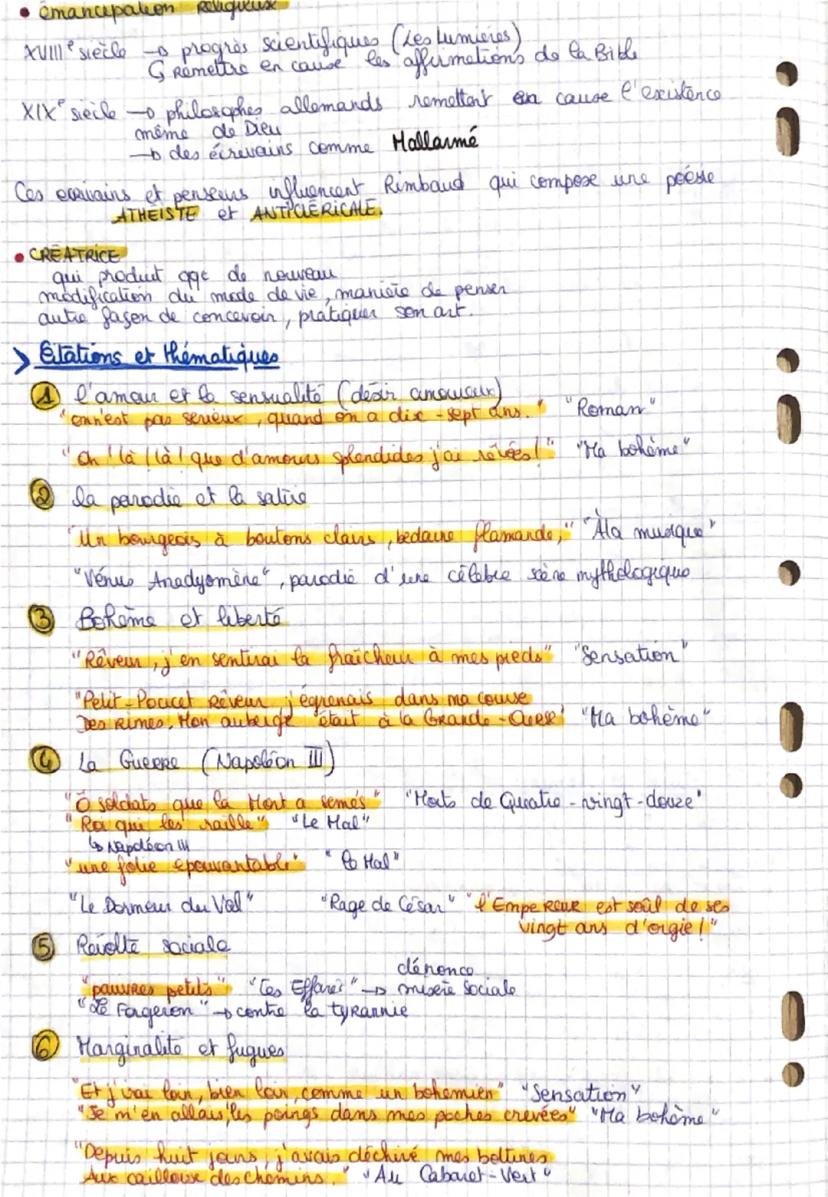 • émancipation religieuse
XVIIIe siècle → progrès scientifiques (Les Lumières)
↳ Remettre en cause les affirmations de la Bible
XIXe siècle → philosophes allemands remettent en cause l'existence
même de Dieu
→ des écrivains comme Mallarmé
Ces écrivains et penseurs influencent Rimbaud qui compose une poésie
ATHÉISTE et ANTICLÉRICALE.
• CRÉATRICE
qui produit qqc de nouveau
modification du mode de vie, manière de penser
autre façon de concevoir, pratiquer son art.
> Citations et thématiques
1 l'amour et la sensualité (désir amoureux)
"on n'est pas sérieux, quand on a dix-sept ans." "Roman"
"Oh ! là ! là ! que d'amours splendides j'ai rêvées !" "Ma bohème"
2 la parodie et la satire
"Un bourgeois à boutons clairs, bedaine flamande," "À la musique"
"Vénus Anadyomène", parodie d'une célèbre scène mythologique
3 Bohème et liberté
"Rêveur, j'en sentirai la fraîcheur à mes pieds" "Sensation"
"Petit-Poucet rêveur j'égrenais dans ma course
Des rimes. Mon auberge était à la Grande-Ourse" "Ma bohème"
4 La Guerre (Napoléon III)
"Ô soldats que la Mort a semés" "Morts de Quatre-vingt-douze"
"Roi qui les raille" "Le Mal"
↳ Napoléon III
"une folie épouvantable" "Le Mal"
"Le Dormeur du Val" "Rage de César" "l'Empereur est soûl de ses
vingt ans d'orgie !"
5 Révolte sociale
dénonce
"pauvres petits" "Les Effarés" → misère sociale
"Le Forgeron" → contre la tyrannie
6 Marginalité et fugues
"Et j'irai loin, bien loin, comme un bohémien" "Sensation"
"Je m'en allais, les poings dans mes poches crevées" "Ma bohème"
"Depuis huit jours, j'avais déchiré mes bottines
Aux cailloux des chemins." "Au Cabaret-Vert"